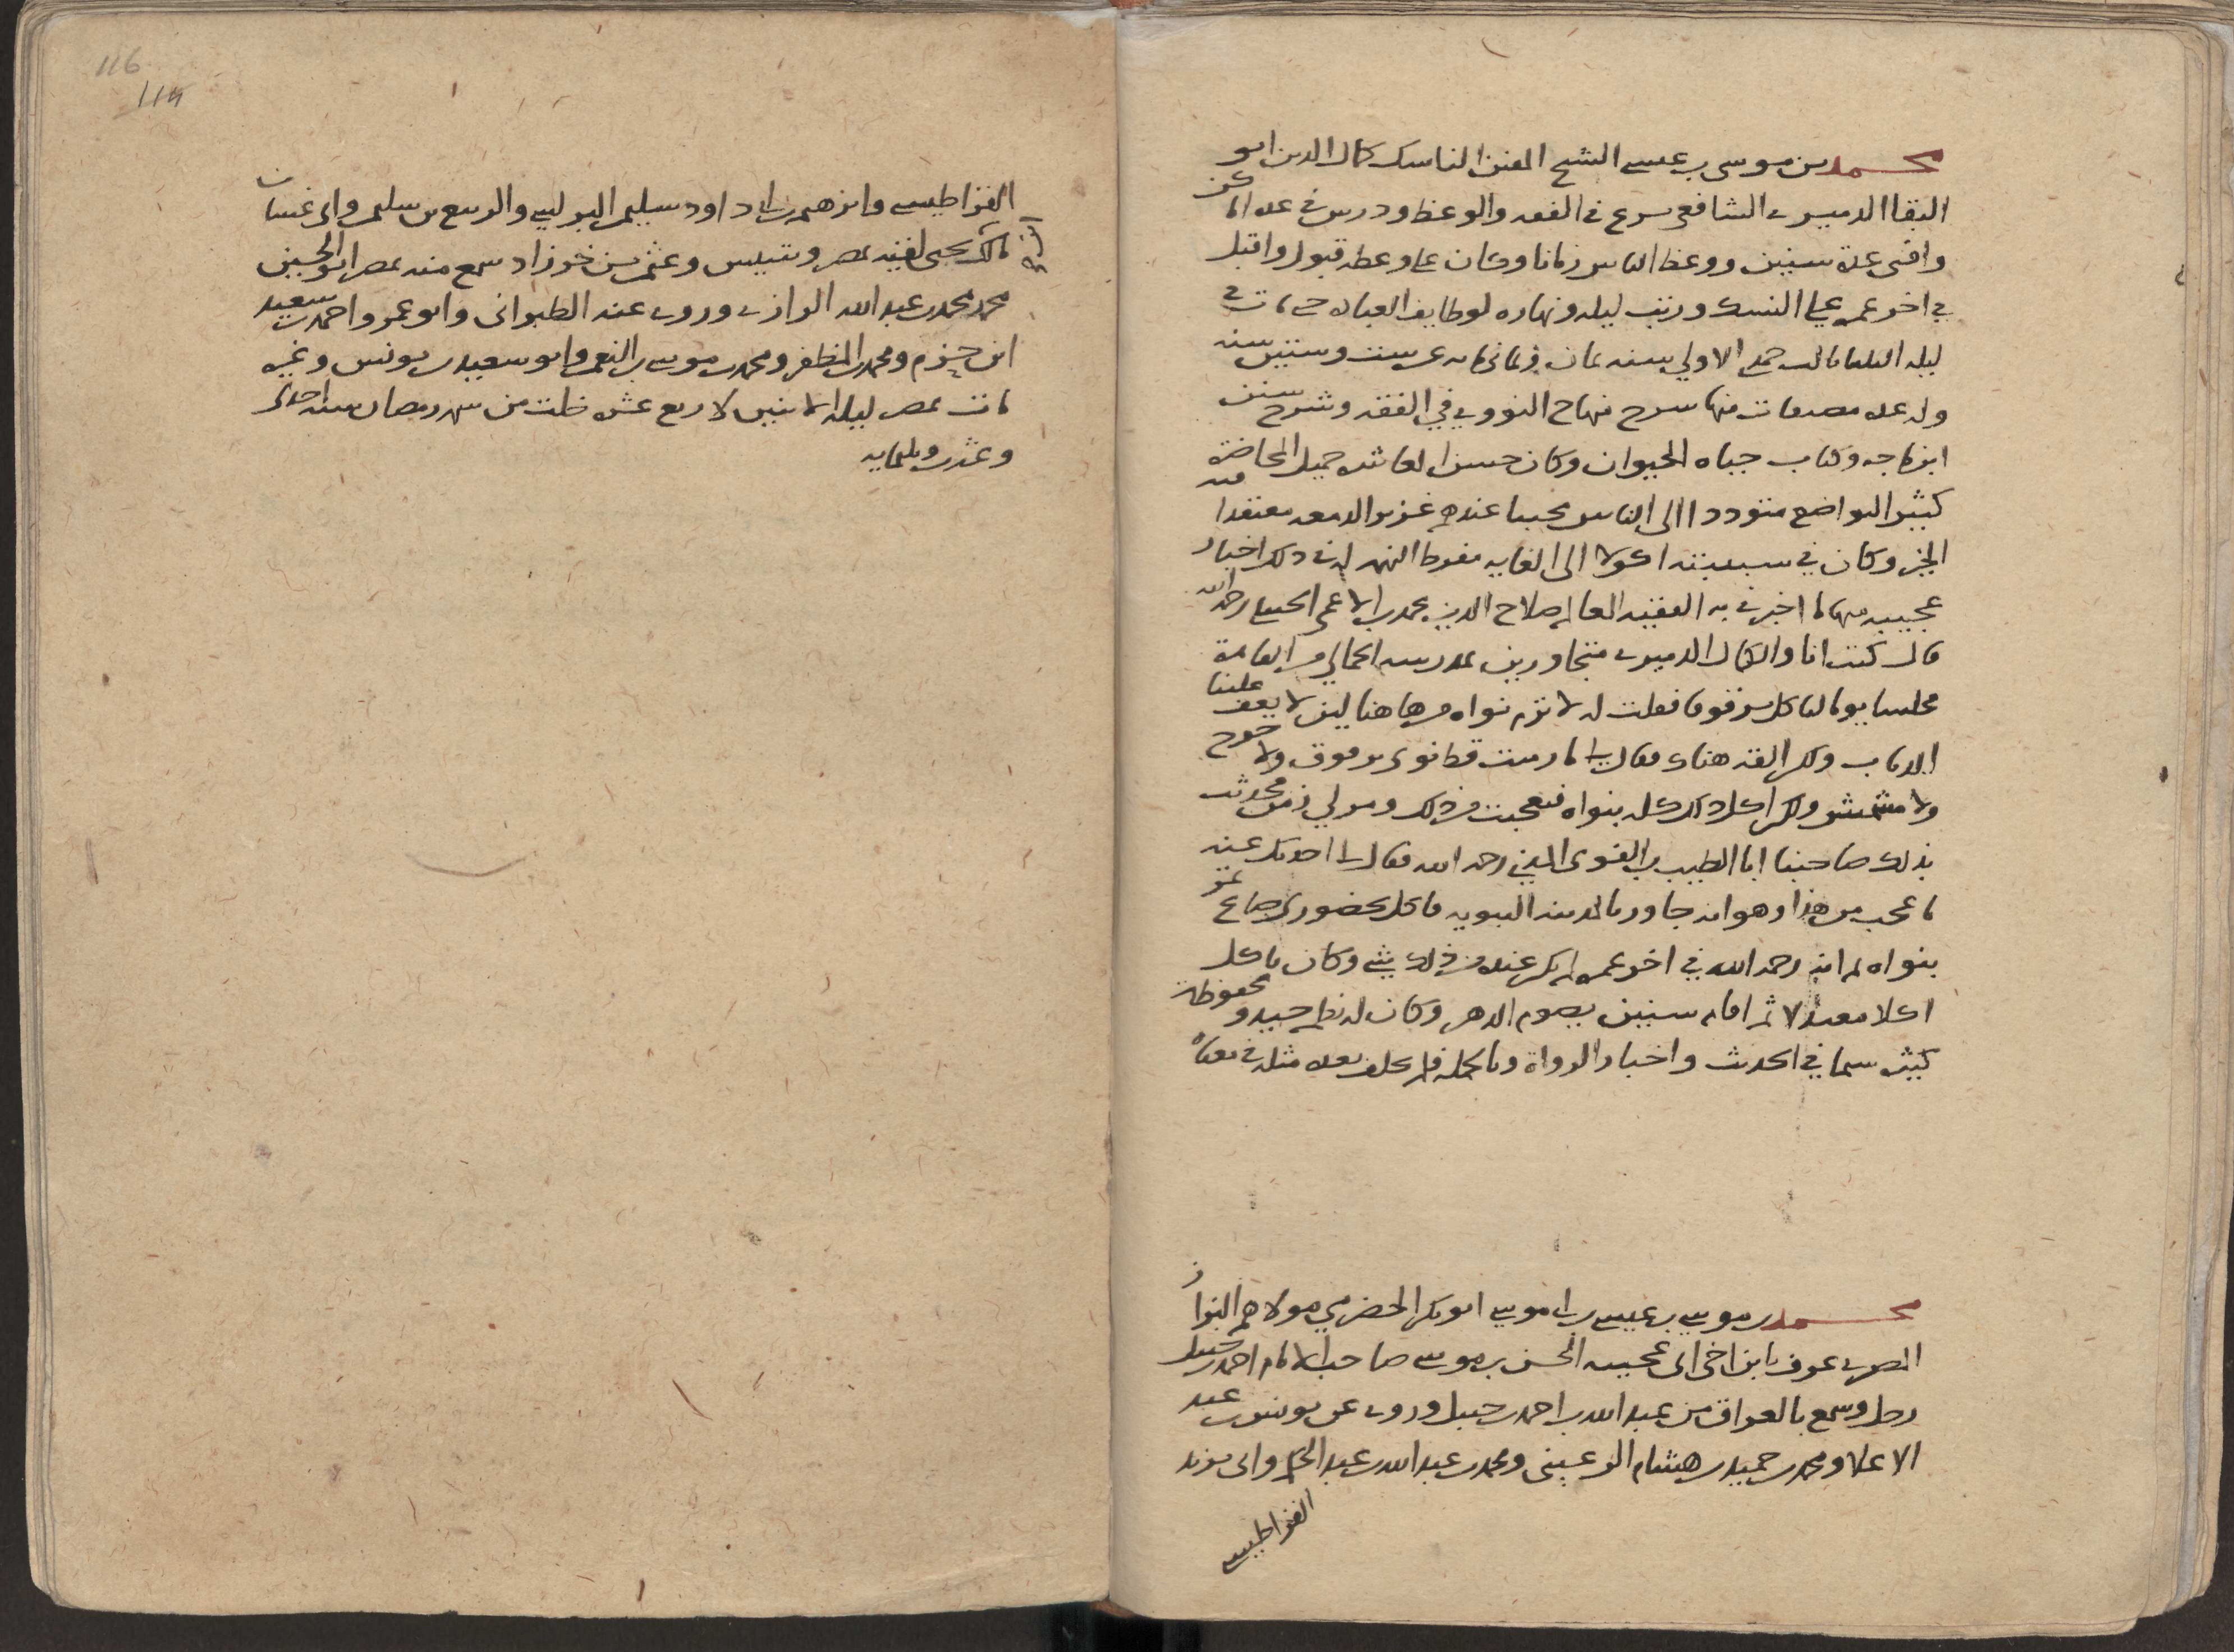 محمد بن موسى بن عيسى الشيخ المفنن الناسك كمال الدين ابو
البقا الدميري الشافعي برع في الفقه والوعظ ودرس في عده اماكن
وافتى عدة سنين ووعظ الناس زمانا وكان على وعظه قبول واقبل
في اخر عمره على النسك ورتب ليله ونهاره لوظايف العباده حتى مات في
ليله الثلثا ثالث جمدى الاولى سنه ثمان وثمانمايه عن ست وستين سنه
وله عده مصنفات منها شرح منهاج النووي في الفقه وشرح سنن
ابن ماجه وكتاب حياه الحيوان وكان حسن المعاشره جميل المحاضرة
كثير التواضع متوددا الى الناس محببا عندهم غزير الدمعه معتقدا فيه
الخير وكان في شبيبته اكولا الى الغايه مفرط النهم له في ذلك اخبار
عجيبه منها ما اخبرني به الفقيه العالم صلاح الدين محمد بن الاعمى الحنبلي رحمه الله
قال كنت انا والكمال الدميري متجاورين بمدرسه الجمالي من القاهرة
فجلسنا يوما لناكل برقوقا فقلت له لا ترم نواه من هاهنا ليلا يعف علينا
الذباب ولكن القه هناك فقال لي ما رميت قط نوى برقوق ولا خوخ
ولا مشمش ولكن اكل ذلك كله بنواه فتعجبت من ذلك ومر لي زمن فحدثت
بذلك صاحبنا ابا الطيب بن الغنوي المدني رحمه الله فقال لي احدثك عنه
باعجب من هذا وهو انه جاور بالمدينه النبويه فاكل بحضوري صاع تمر
بنواه ثم انه رحمه الله في اخر عمره لم يكن عنده من ذلك شي وكان ياكل
اكلا معتدلا ثم اقام سنين يصوم الدهر وكان له نظم جيد ومحفوظات
كثيره سيما في الحديث واخبار الرواة وبالجمله فلم يخلف بعده مثله في معناه
محمد بن موسى بن عيسى بن ابي موسى ابو بكر الحضرمي مولاهم البزاز
المصري عرف بابن اخي ابي عجيبه الحسن بن موسى صاحب الامام احمد بن حنبل
رحل وسمع بالعراق من عبد الله بن احمد بن حنبل وروى عن يونس بن عبد
الاعلا ومحمد بن حميد بن هشام الرعيني ومحمد بن عبد الله بن عبد الحكم وابي يزيد
القراطيسي
القراطيسي وابرهيم بن ابي داود سليمن البرلسي والربيع بن سليمن وابي غسان
مالك بن يحيى لقيه بمصر وتنيس وعثمن بن خرزاد سمع منه بمصر ابو الحسين
محمد بن محمد بن عبد الله الرازي وروى عنه الطبراني وابو عمر واحمد بن سعيد
ابن حزم ومحمد بن المظفر ومحمد بن موسى بن النعمن وابو سعيد بن يونس وغيره
مات بمصر ليله الاثنين لاربع عشره خلت من شهر رمضان سنه احدى
وعشرين وثلثمايه
116
114